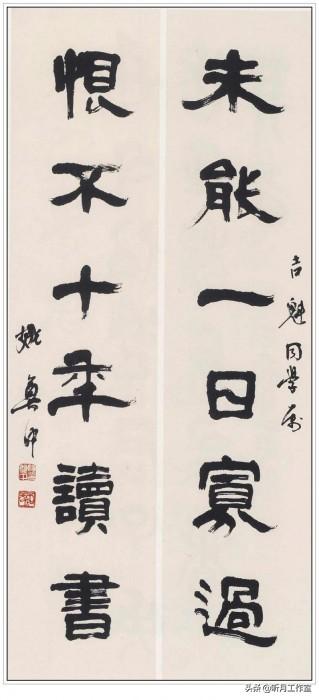 未能一日寡過
吉魁同學屬
恨不十年讀書
姚奠中
头条 @昕月工作室